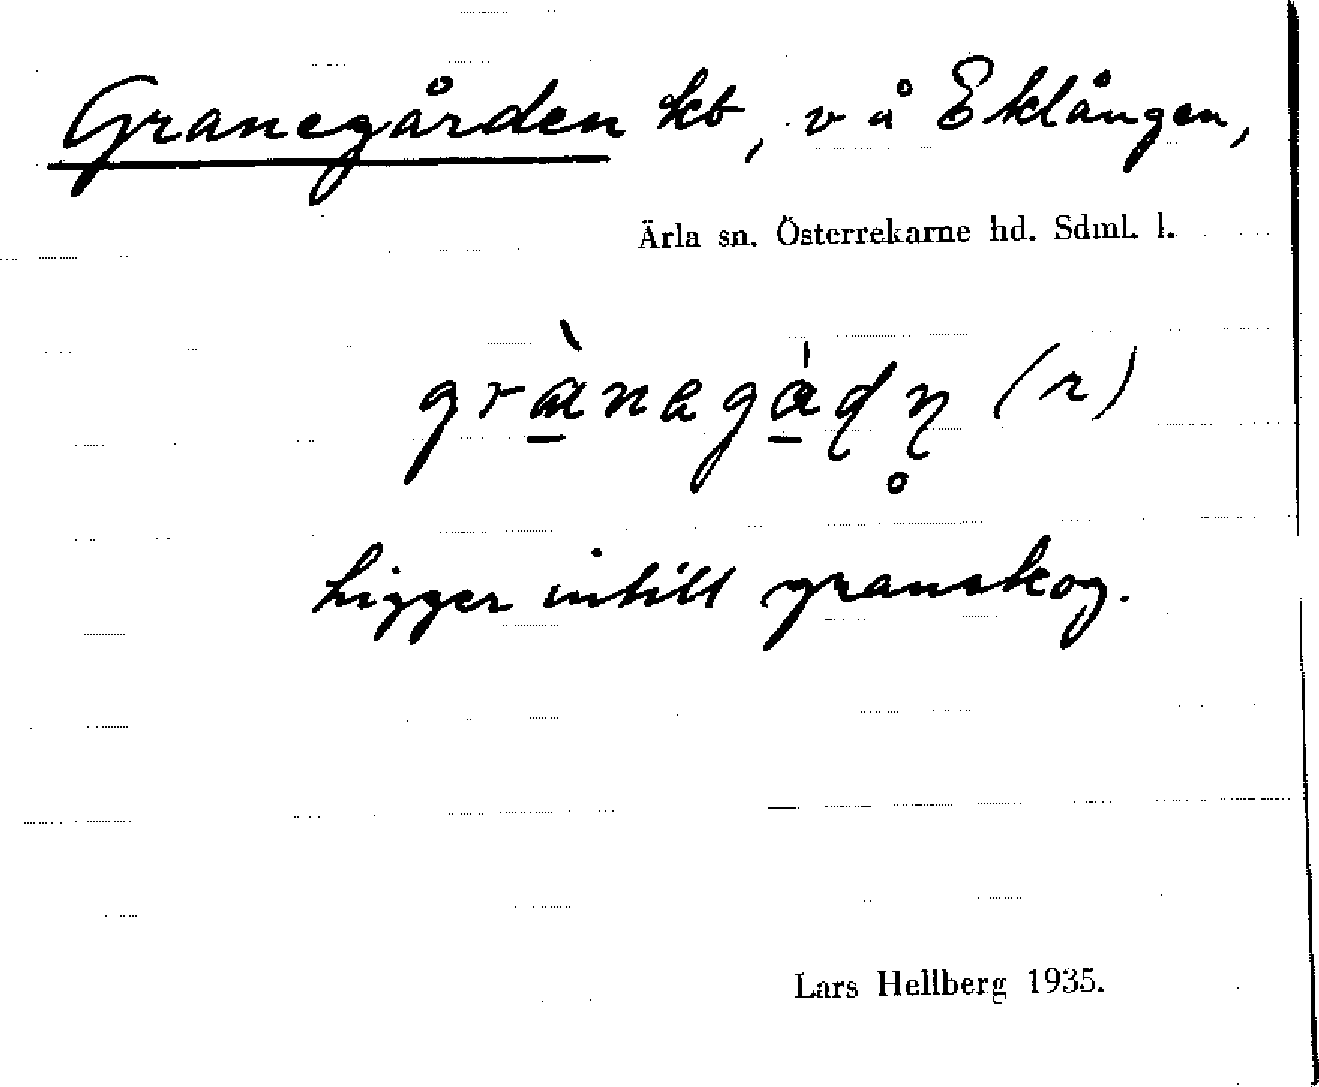 Granegården kt, v å Eklången,
Ärla sn. Österrekarne hd. Sdml. l.
grànagádn̥ (r)
Ligger intill granskog.
Lars Hellberg 1935.